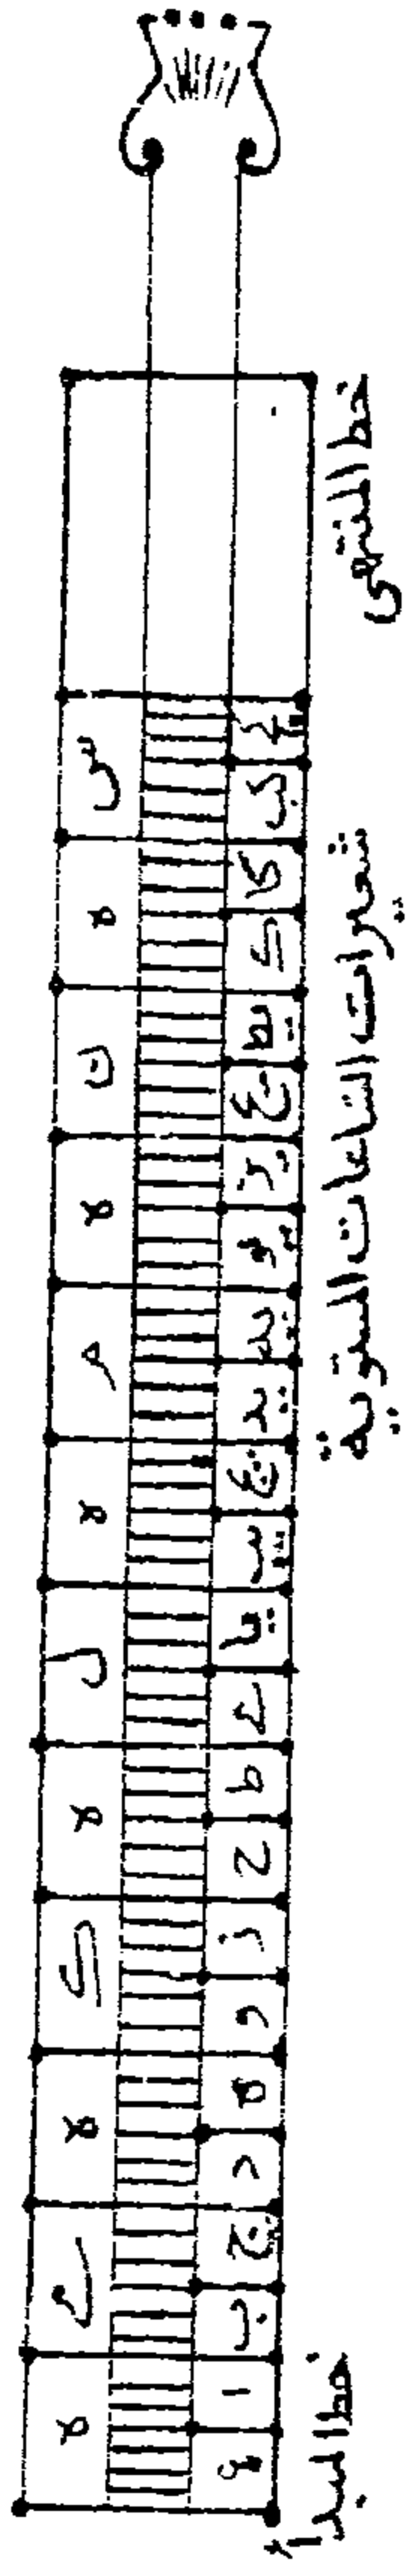 خط المنتهى
شعيرات الساعات المستوية
خط المبدأ
س
ه
ن
ه
م
ه
ل
ه
ك
ه
ي
ه
كج
كب
كا
ك
يط
يح
يز
يو
يه
يد
يج
يب
يا
ي
ط
ح
ز
و
ه
د
ج
ب
ا